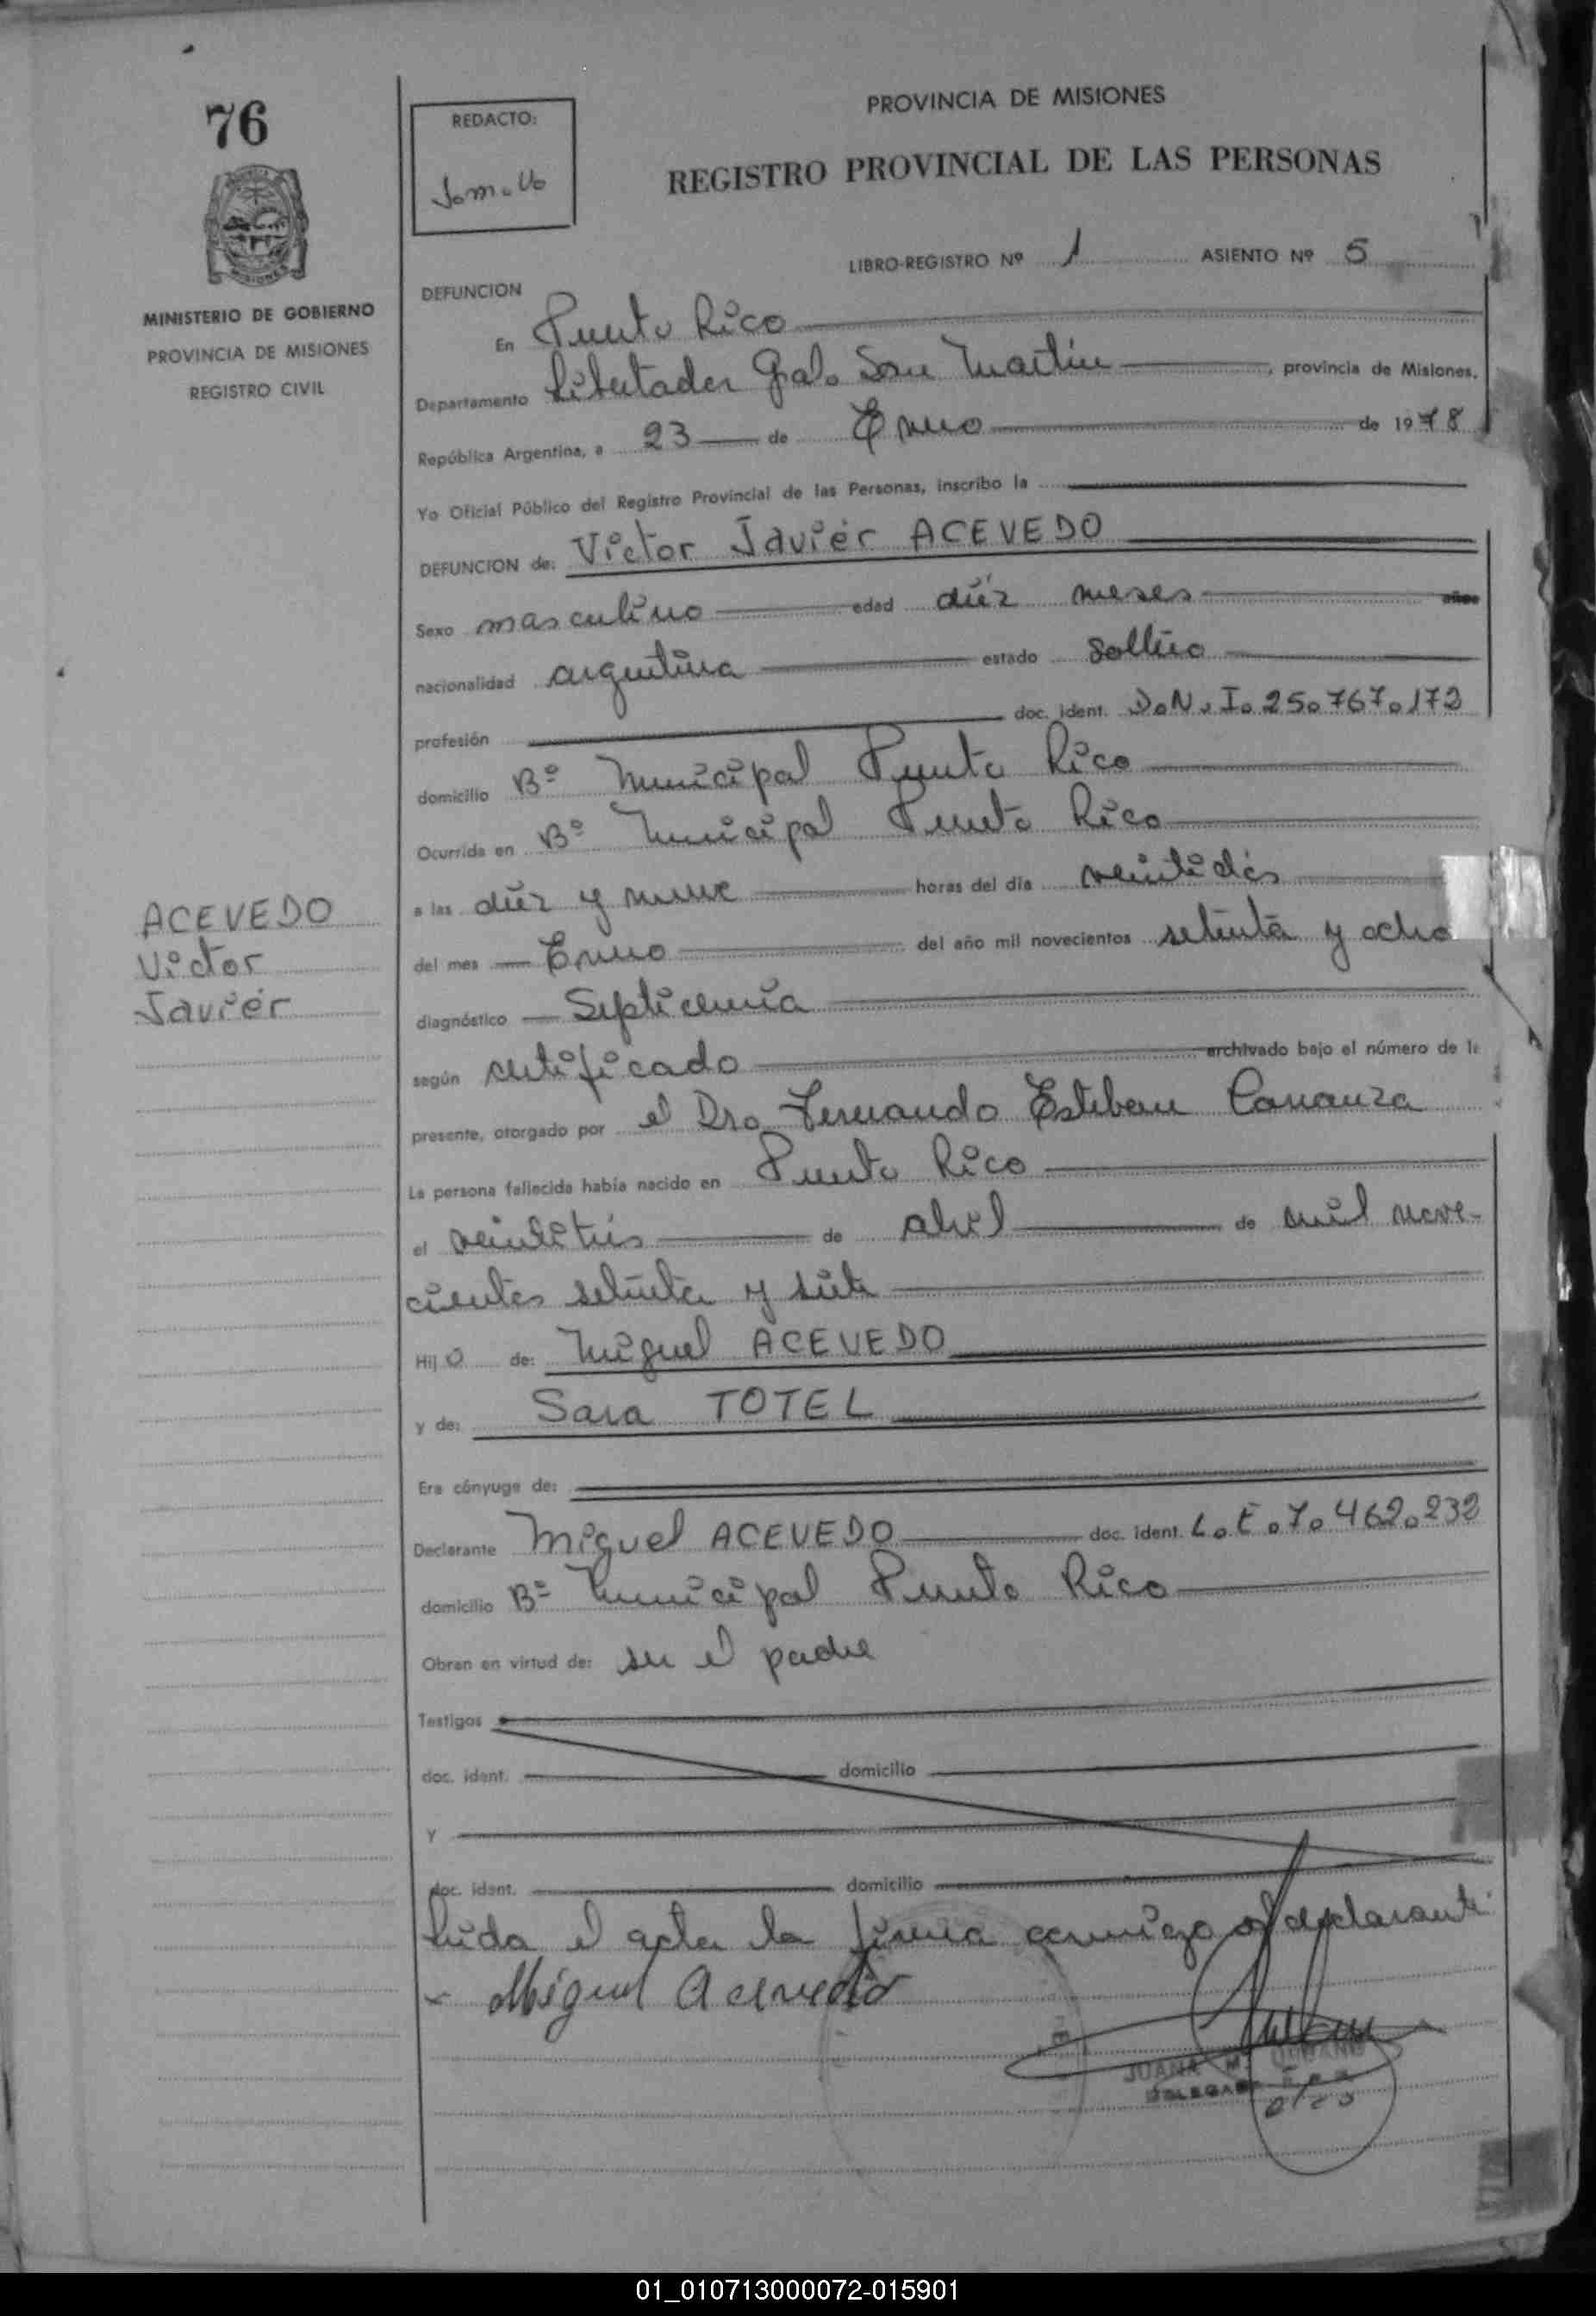 76
REDACTO:
J.M.U.
PROVINCIA DE MISIONES
REGISTRO PROVINCIAL DE LAS PERSONAS
MINISTERIO DE GOBIERNO
PROVINCIA DE MISIONES
REGISTRO CIVIL
LIBRO-REGISTRO Nº 1 ASIENTO Nº 5
DEFUNCION
En Puerto Rico
Departamento Libertador Gral. San Martín, provincia de Misiones,
República Argentina, a 23 de Enero de 1978
Yo Oficial Público del Registro Provincial de las Personas, inscribo la
DEFUNCION de: Victor Javiér ACEVEDO
Sexo masculino edad diéz meses años
nacionalidad argentina estado soltero
profesión doc. ident. D.N.I. 25.767.172
domicilio Bº Municipal Puerto Rico
Ocurrida en Bº Municipal Puerto Rico
a las diéz y nueve horas del día veintidós
del mes Enero del año mil novecientos setenta y ocho
ACEVEDO
Victor
Javiér
diagnóstico Septicemia
según certificado archivado bajo el número de la
presente, otorgado por el Dr. Fernando Esteban
La persona fallecida había nacido en Puerto Rico
el veintitrés de abril de mil nove-
cientos setenta y siete
Hijo de: Miguel ACEVEDO
y de: Sara TOTEL
Era cónyuge de:
Declarante Miguel ACEVEDO doc. ident. L.E. 7.462.232
domicilio Bº Municipal Puerto Rico
Obran en virtud de: ser el padre
Testigos
doc. ident. domicilio
Y
doc. ident. domicilio
Leída el acta la firma conmigo el declarante
Miguel Acevedo
JUANA M.
DELEGADA
01_010713000072-015901